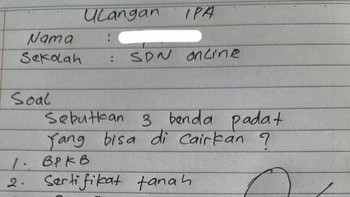 Ulangan IPA
Nama :
Sekolah : SDN online
Soal
Sebutkan 3 benda padat
yang bisa di cairkan ?
1. BPKB
2. Sertifikat tanah